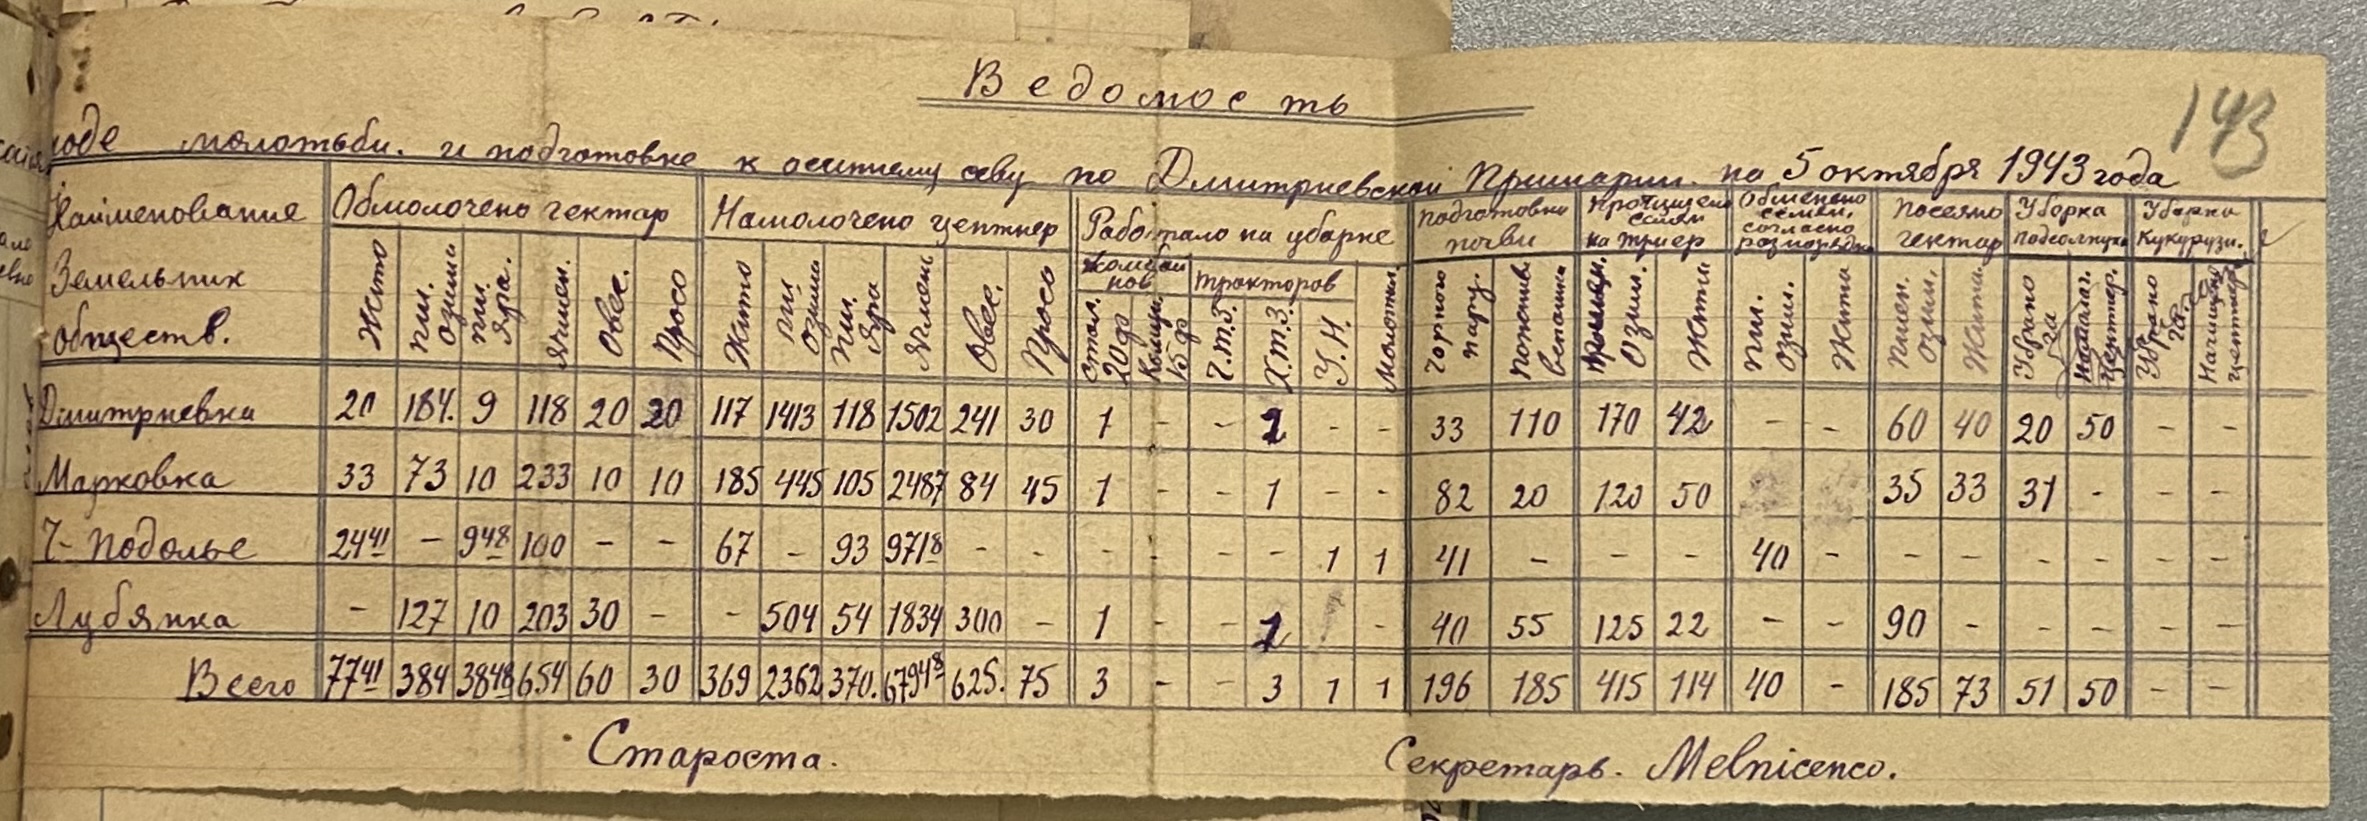 Ведомость
143
ходе молотьби. и подготовке к осеннему севу по Дмитриевской Примарии на 5 октября 1943 года
Наименование Земельних обществ. | Обмолочено гектар | Намолочено центнер | Работало на уборке | Подготовка почви | семян на триер | Обменено семян, согласно | Посеяно гектар | Уборка подсолнуха | Уборка Кукурузи.
Жито | Пш. Озими | Пш. Яра. | Ячмен. | Овес. | Просо | Жито | Пш Озими | Пш. Яра | Ячмен | Овес. | Просо | тракторов | Ч.Т.З. | Х.Т.З. | У.Н. | Чорного пару. | Озим. | Жита | Пш. Озим. | Жита | Пшен. Озим. | Жита. | Убрано га | Убрано га.
Дмитриевка | 20 | 184. | 9 | 118 | 20 | 20 | 117 | 1413 | 118 | 1502 | 241 | 30 | 1 | - | - | 1 | - | - | 33 | 110 | 170 | 42 | - | - | 60 | 40 | 20 | 50 | - | -
Марковка | 33 | 73 | 10 | 233 | 10 | 10 | 185 | 445 | 105 | 2487 | 84 | 45 | 1 | - | - | 1 | - | - | 82 | 20 | 120 | 50 | 35 | 33 | 31 | - | - | -
Ч-Подолье | 24 41 | - | 9 48 | 100 | - | - | 67 | - | 93 | 971 8 | - | - | - | - | - | - | 1 | 1 | 41 | - | - | - | 40 | - | - | - | - | - | - | -
Лубянка | - | 127 | 10 | 203 | 30 | - | - | 504 | 54 | 1834 | 300 | - | 1 | - | - | 1 | - | 40 | 55 | 125 | 22 | - | - | 90 | - | - | - | - | -
Всего | 77 41 | 384 | 38 48 | 654 | 60 | 30 | 369 | 2362 | 370. | 6794 8 | 625. | 75 | 3 | - | - | 3 | 1 | 1 | 196 | 185 | 415 | 114 | 40 | - | 185 | 73 | 51 | 50 | - | -
Староста. Секретарь. Melnicenco.